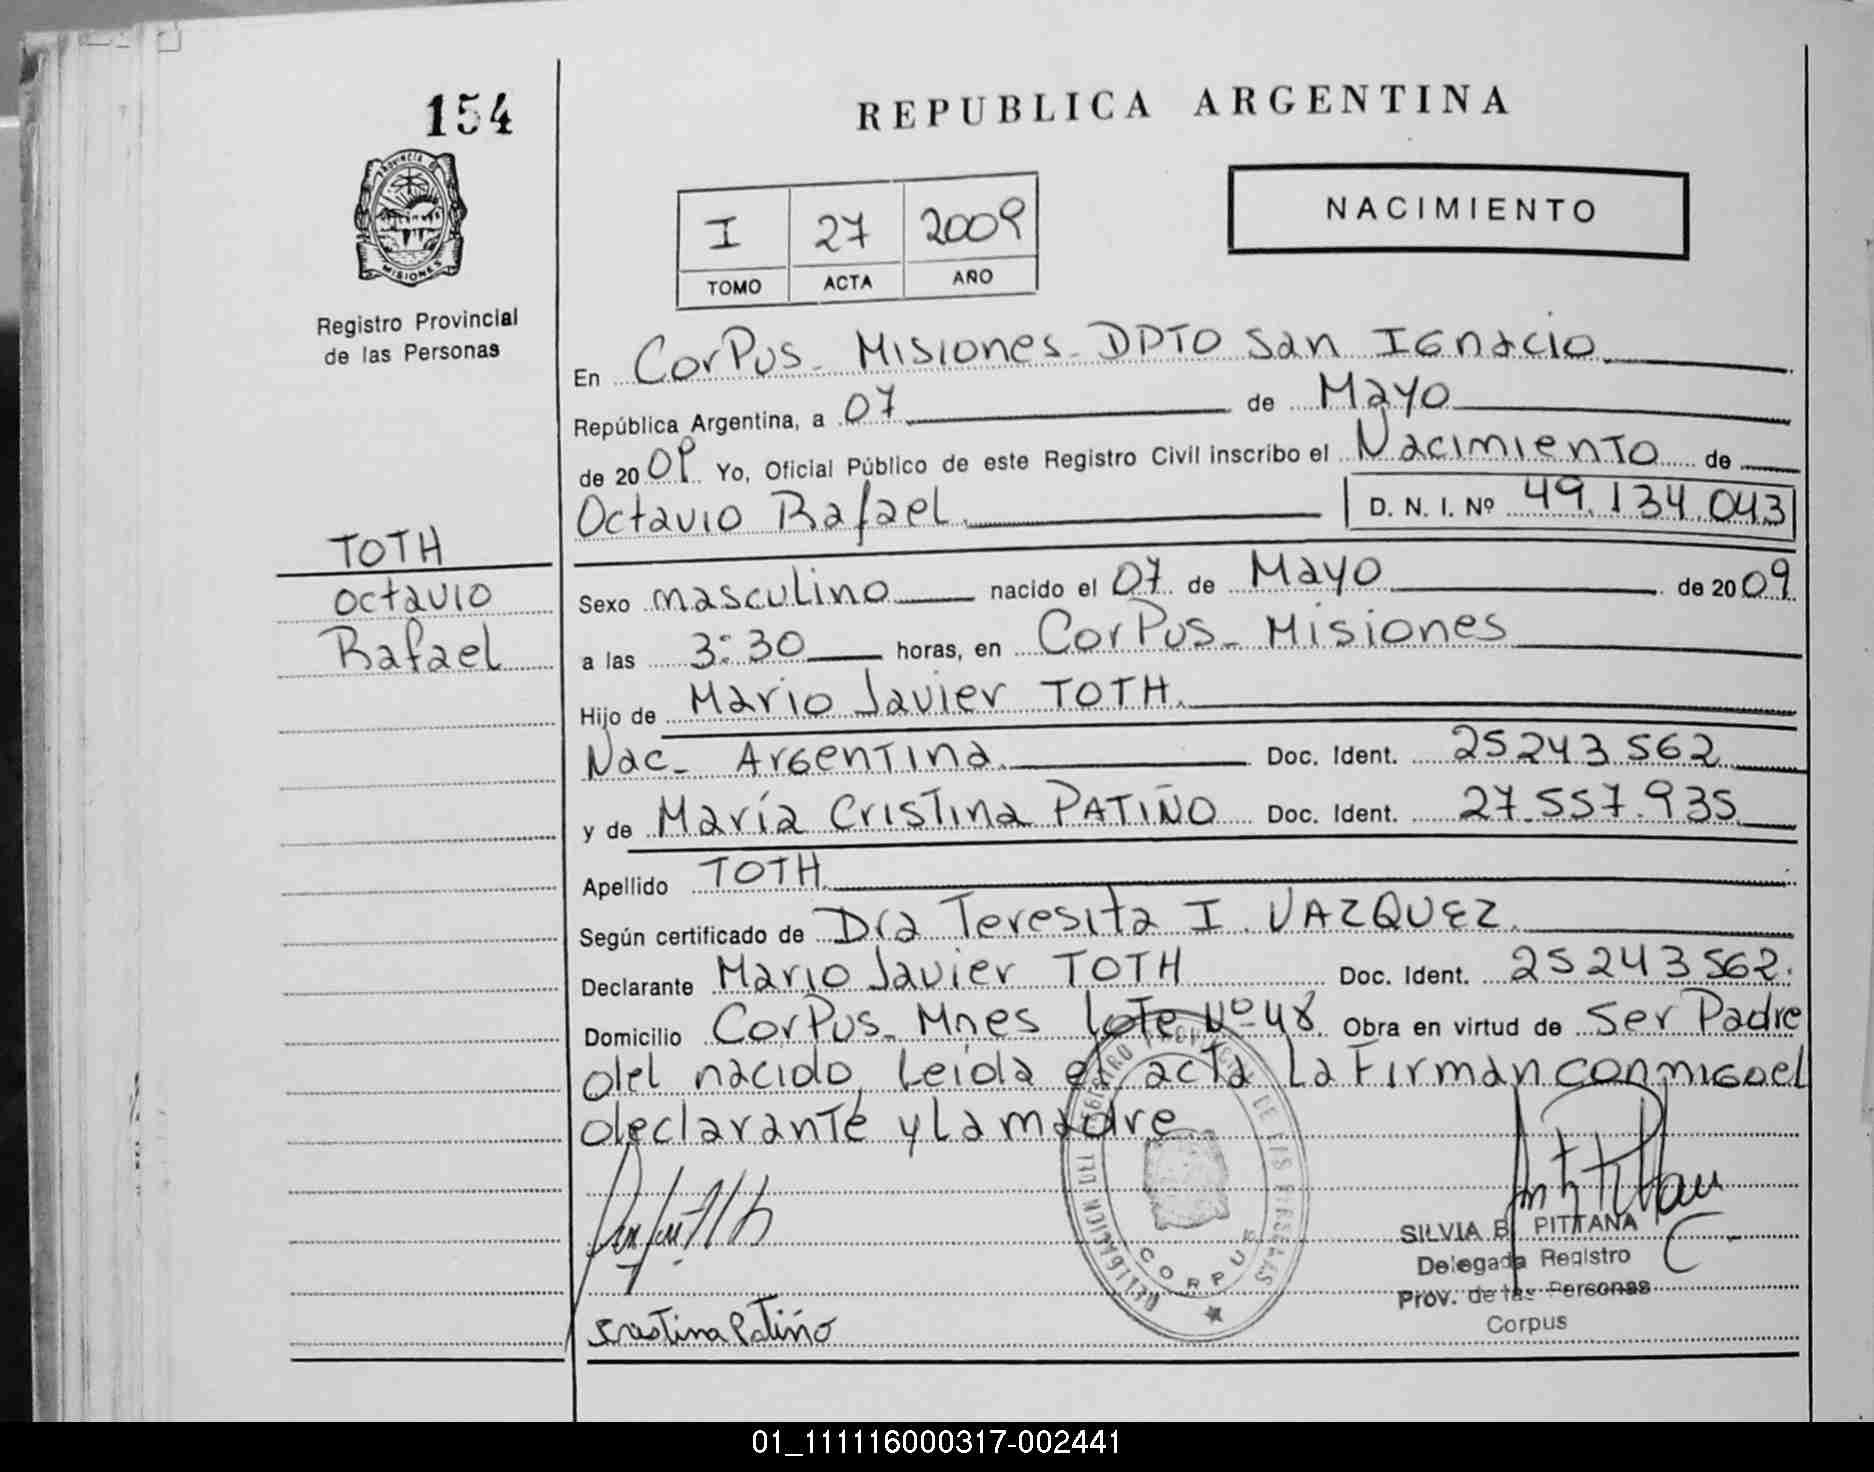 154
REPUBLICA ARGENTINA
PROVINCIA DE
MISIONES
Registro Provincial
de las Personas
I 27 2009
TOMO ACTA AÑO
NACIMIENTO
En Corpus - Misiones - DPTO San Ignacio
República Argentina, a 07 de Mayo
de 2009 Yo, Oficial Público de este Registro Civil inscribo el Nacimiento de
Octavio Rafael D. N. I. Nº 49.134.043
TOTH
Octavio
Rafael
Sexo masculino nacido el 07 de Mayo de 2009
a las 3:30 horas, en Corpus - Misiones
Hijo de Mario Javier TOTH.
Nac - Argentina. Doc. Ident. 25243562
y de María Cristina PATIÑO Doc. Ident. 27.557.935
Apellido TOTH
Según certificado de Dra Teresita I. VAZQUEZ.
Declarante Mario Javier TOTH Doc. Ident. 25243562.
Domicilio Corpus - Mnes lote Nº 48 Obra en virtud de Ser Padre
del nacido, Leída el acta La Firman conmigo el
declarante y La madre
CORPUS
SILVIA B. PITTANA
Delegada Registro
Prov. de las Personas
Corpus
Cristina Patiño
01_111116000317-002441